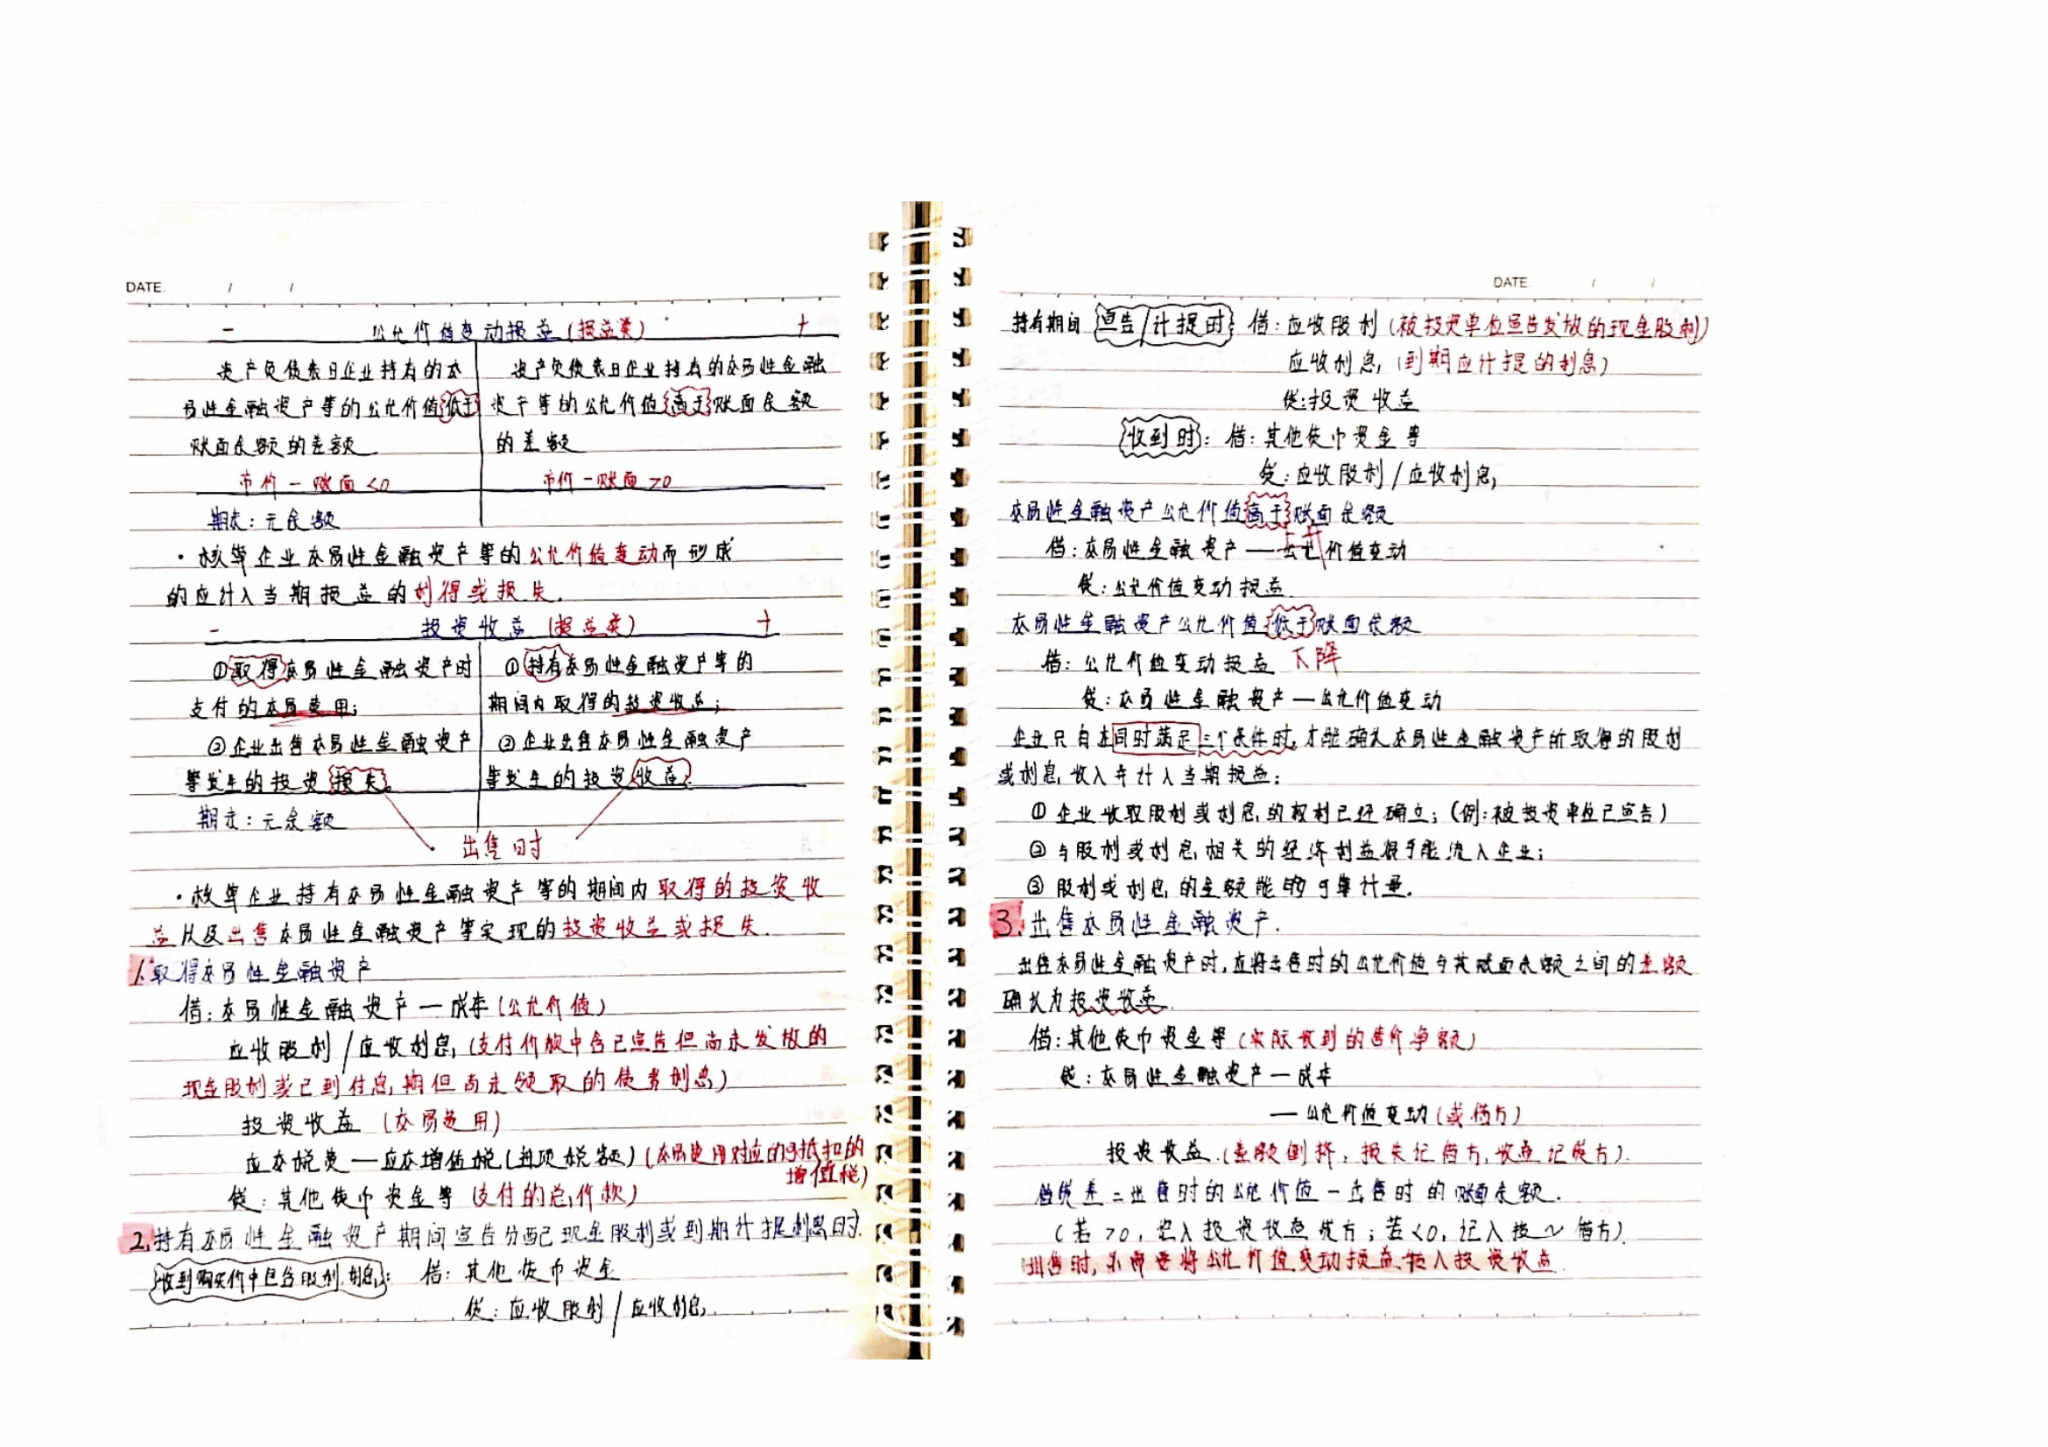 DATE. / /
− 公允价值变动损益(损益类) +
资产负债表日企业持有的交
易性金融资产等的公允价值低于
账面余额的差额
市价－账面<0
资产负债表日企业持有的交易性金融
资产等的公允价值高于账面余额
的差额
市价－账面>0
期末：无余额
·核算企业交易性金融资产等的公允价值变动而形成
的应计入当期损益的利得或损失.
− 投资收益(损益类) +
①取得交易性金融资产时
支付的交易费用;
②企业出售交易性金融资产
等发生的投资损失.
①持有交易性金融资产等的
期间内取得的投资收益;
②企业出售交易性金融资产
等发生的投资收益.
期末：无余额
出售时
·核算企业持有交易性金融资产等的期间内取得的投资收
益以及出售交易性金融资产等实现的投资收益或损失.
1.取得交易性金融资产
借:交易性金融资产—成本(公允价值)
应收股利/应收利息(支付价款中含已宣告但尚未发放的
现金股利或已到付息期但尚未领取的债券利息)
投资收益(交易费用)
应交税费—应交增值税(进项税额)(交易费用对应的可抵扣的
增值税)
贷:其他货币资金等(支付的总价款)
2.持有交易性金融资产期间宣告分配现金股利或到期计提利息时.
收到购买价中包含股利.利息: 借:其他货币资金
贷:应收股利/应收利息
DATE. / /
持有期间 宣告/计提时: 借:应收股利(被投资单位宣告发放的现金股利)
应收利息(到期应计提的利息)
贷:投资收益
收到时: 借:其他货币资金等
贷:应收股利/应收利息
交易性金融资产公允价值高于账面余额
上升
借:交易性金融资产—公允价值变动
贷:公允价值变动损益
交易性金融资产公允价值低于账面余额
借:公允价值变动损益 下降
贷:交易性金融资产—公允价值变动
企业只有在同时满足三个条件时,才能确认交易性金融资产所取得的股利
或利息收入并计入当期损益:
①企业收取股利或利息的权利已经确立;(例:被投资单位已宣告)
②与股利或利息相关的经济利益很可能流入企业;
③股利或利息的金额能够可靠计量.
3.出售交易性金融资产.
出售交易性金融资产时,应将出售时的公允价值与其账面余额之间的差额
确认为投资收益.
借:其他货币资金等(实际收到的售价净额)
贷:交易性金融资产—成本
—公允价值变动(或借方)
投资收益.(差额倒挤,损失记借方,收益记贷方).
借贷差=出售时的公允价值－出售时的账面余额.
(若>0,记入投资收益贷方;若<0,记入投～借方).
出售时,不需要将公允价值变动损益转入投资收益.